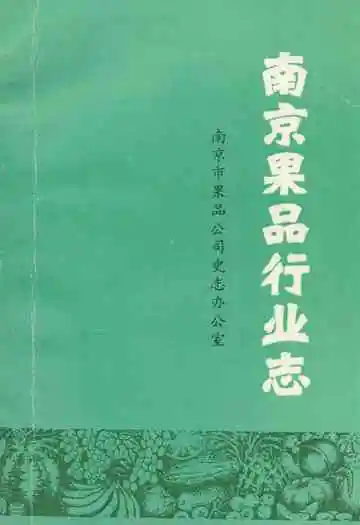 南京果品行业志
南京市果品公司史志办公室